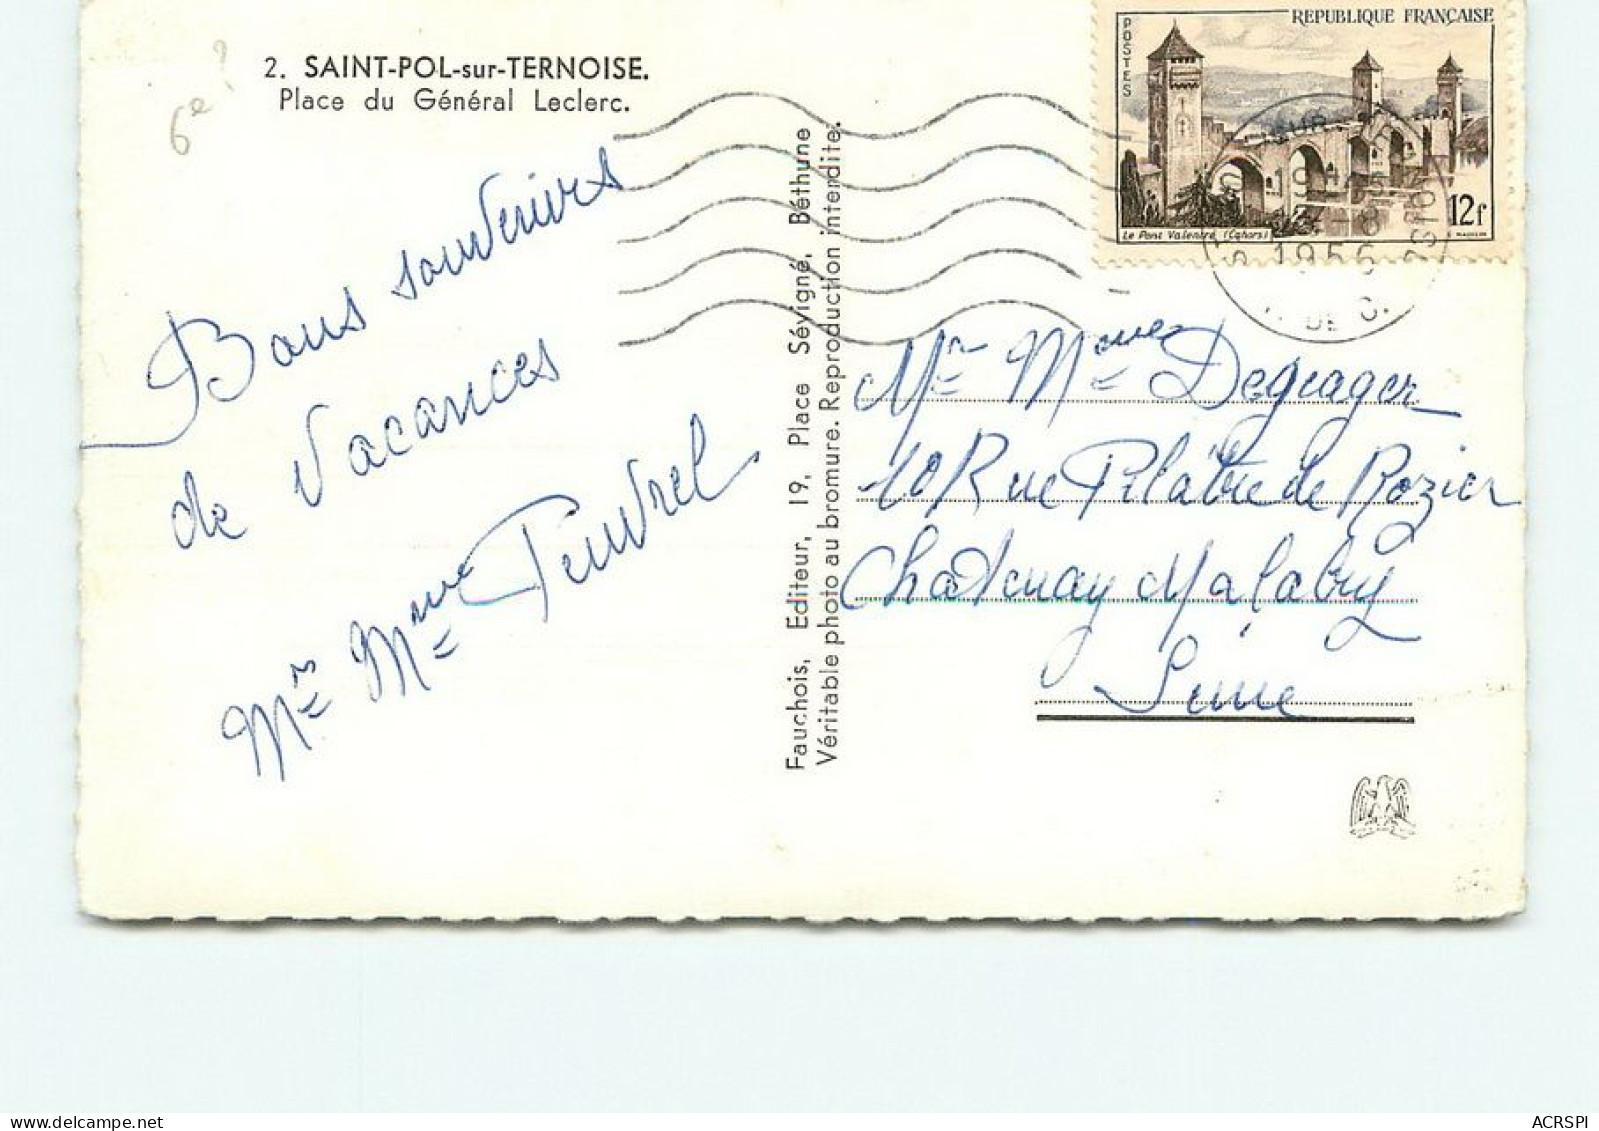 2. SAINT-POL-sur-TERNOISE.
Place du Général Leclerc.
6e ?
Bons souvenirs
de Vacances
Mr Mme
Fauchois, Editeur, 19, Place Sévigné, Béthune
Véritable photo au bromure. Reproduction interdite.
REPUBLIQUE FRANÇAISE
POSTES
12f
Le Pont Valentré (Cahors)
1956
P. DE C.
Mr Mme Degrager
10 Rue Pilatre de Rozier
Chatenay Malabry
Seine
ACRSPI